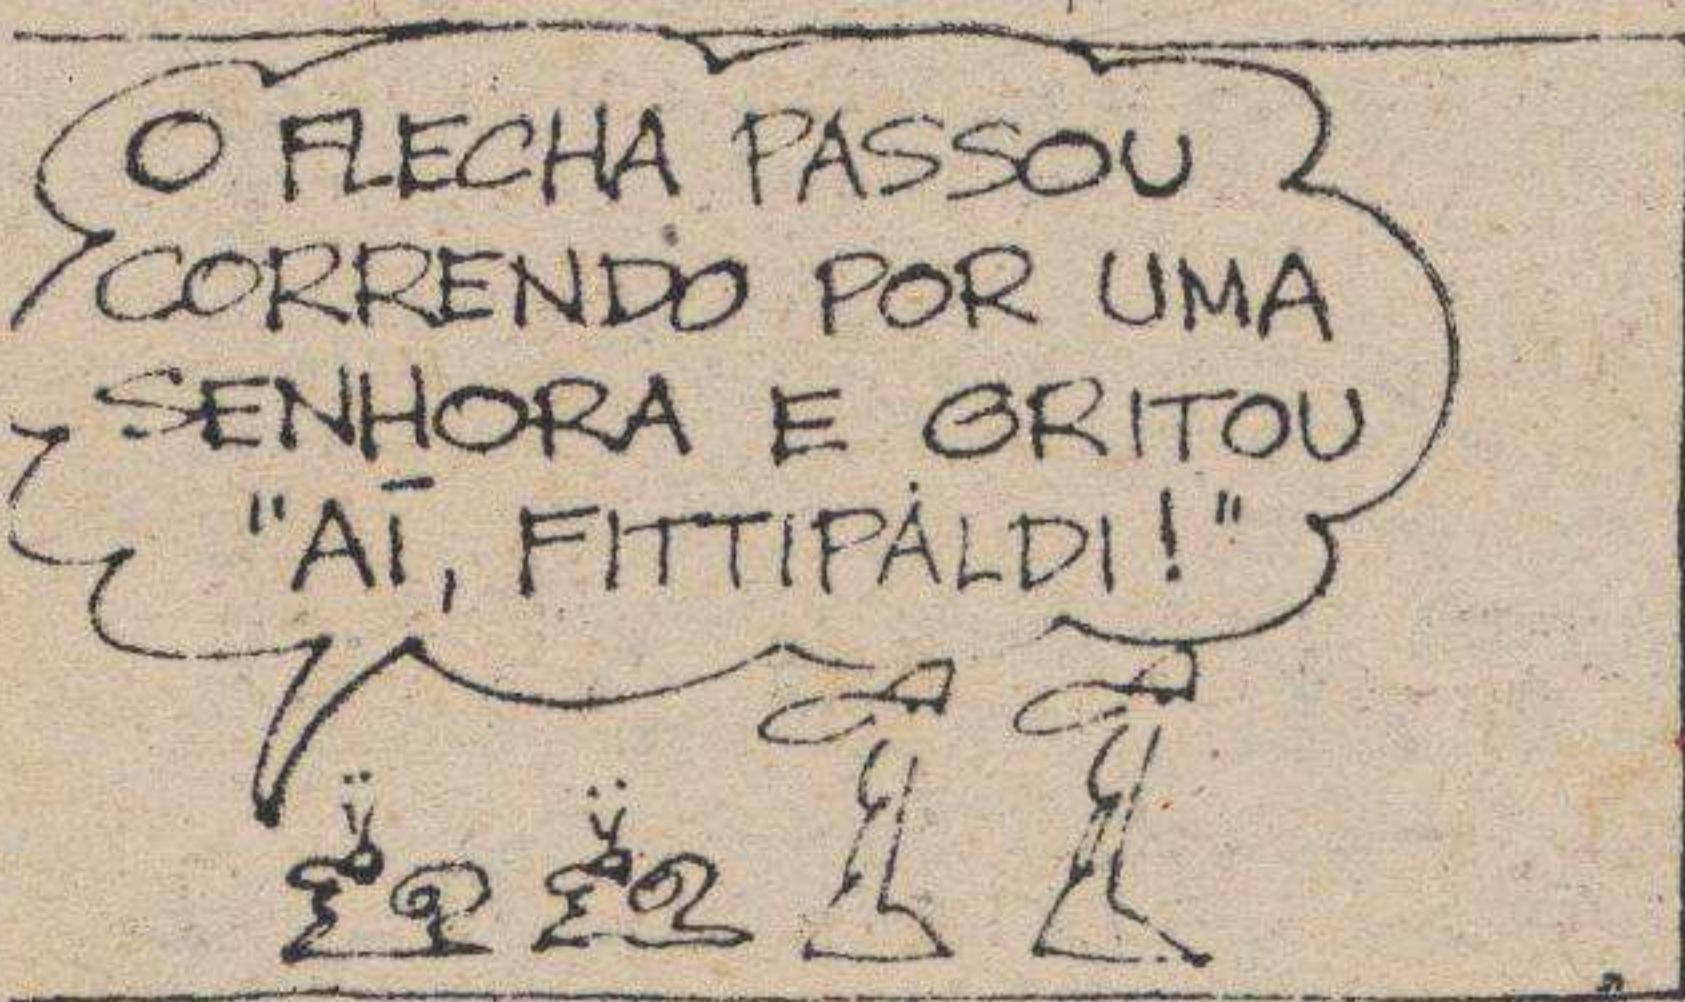 O FLECHA PASSOU
CORRENDO POR UMA
SENHORA E GRITOU
"AÍ, FITTIPALDI!"